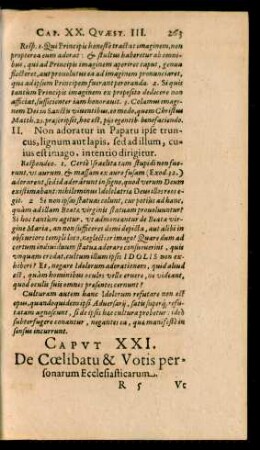 CAP. XX. QVÆST. III. 263
Resp. 1. Qui Principis honeste tractat imaginem, non
propterea eum adorat: & stultus haberetur ab omni-
bus, qui ad Principis imaginem aperiret caput, genua
flecteret, aut pronolutus ea ad imaginem pronunciaret,
quæ ad ipsum Principem peroranda. 2. Si quis
tantùm Principis imaginem ex proposito dedecore non
afficiat, sufficienter iam honoravit. 3. Colamus imagi-
nem Dei in Sanctis viventibus, eo modo, quem Christus
Matth. 25. præscripsit, hoc est, piis egentib. benefaciendo.
II. Non adoratur in Papatu ipse trun-
cus, lignum aut lapis. sed ad illum, cu-
ius est imago, intentio dirigitur.
Respondeo. 1. Certè Israëlitæ tam stupidi non fue-
runt, vt aurum, & massam ex auro fusam (Exod. 32.)
adorarent, sed id adorârunt in signo, quod verum Deum
existimabant: nihilominus Idololatria Deus illos redar-
git. 2 Si non ipsas statuas colunt, cur potius ad hanc,
quàm ad illam Beatæ virginis statuam provoluuntur?
Si hoc tantùm agitur, vt admoneantur de Beata virgi-
ne Maria, an non sufficeret domi depicta, aut alibi in
obscuriori templi loco, neglecta eius imago? Quare dum ad
certum duntaxat statuam adorare consueverint, quis
unquam credat, cultum illum ipsis IDOLIS non ex-
hiberi? Et, negare Idolorum adorationem, quid aliud
est, quàm hominibus oculos velle eruere, ne videant,
quod oculis suis omnes præsentes cernunt?
Culturam autem hanc Idolorum refutare non est
opus, quandoquidem ipsi Adversarij, satis superq́; refu-
tatam agnoscunt, si de ipsis hac cultura probetur: ideò
subterfugere conantur, negantes ea, quæ manifestè in
sensus incurrunt.
CAPVT XXI.
De Cœlibatu & Votis per-
sonarum Ecclesiasticarum.
R 5 Vt